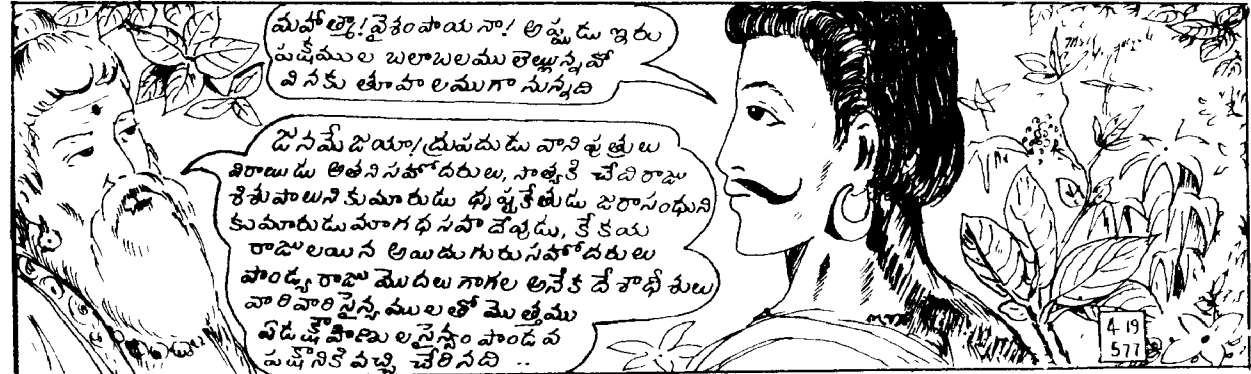 మహాత్మా! వైశంపాయనా! అప్పుడు ఇరు
పక్షముల బలాబలము లెట్లున్నవో
వినకు తూహలముగా నున్నది
జనమేజయా! ద్రుపదుడు వాని పుత్రులు
విరాటుడు అతని సహోదరులు, సాత్యకి చేదిరాజు
శిశుపాలుని కుమారుడు ధృష్టకేతుడు జరాసంధుని
కుమారుడు మాగధ సహదేవుడు, కేకయ
రాజులయిన అయిదుగురు సహోదరులు
పాండ్య రాజు మొదలు గాగల అనేక దేశాధీశులు
వారివారి సైన్యములతో మొత్తము
ఏడక్షౌహిణుల సైన్యం పాండవ
పక్షానికి వచ్చి చేరినది ..
4-19
577